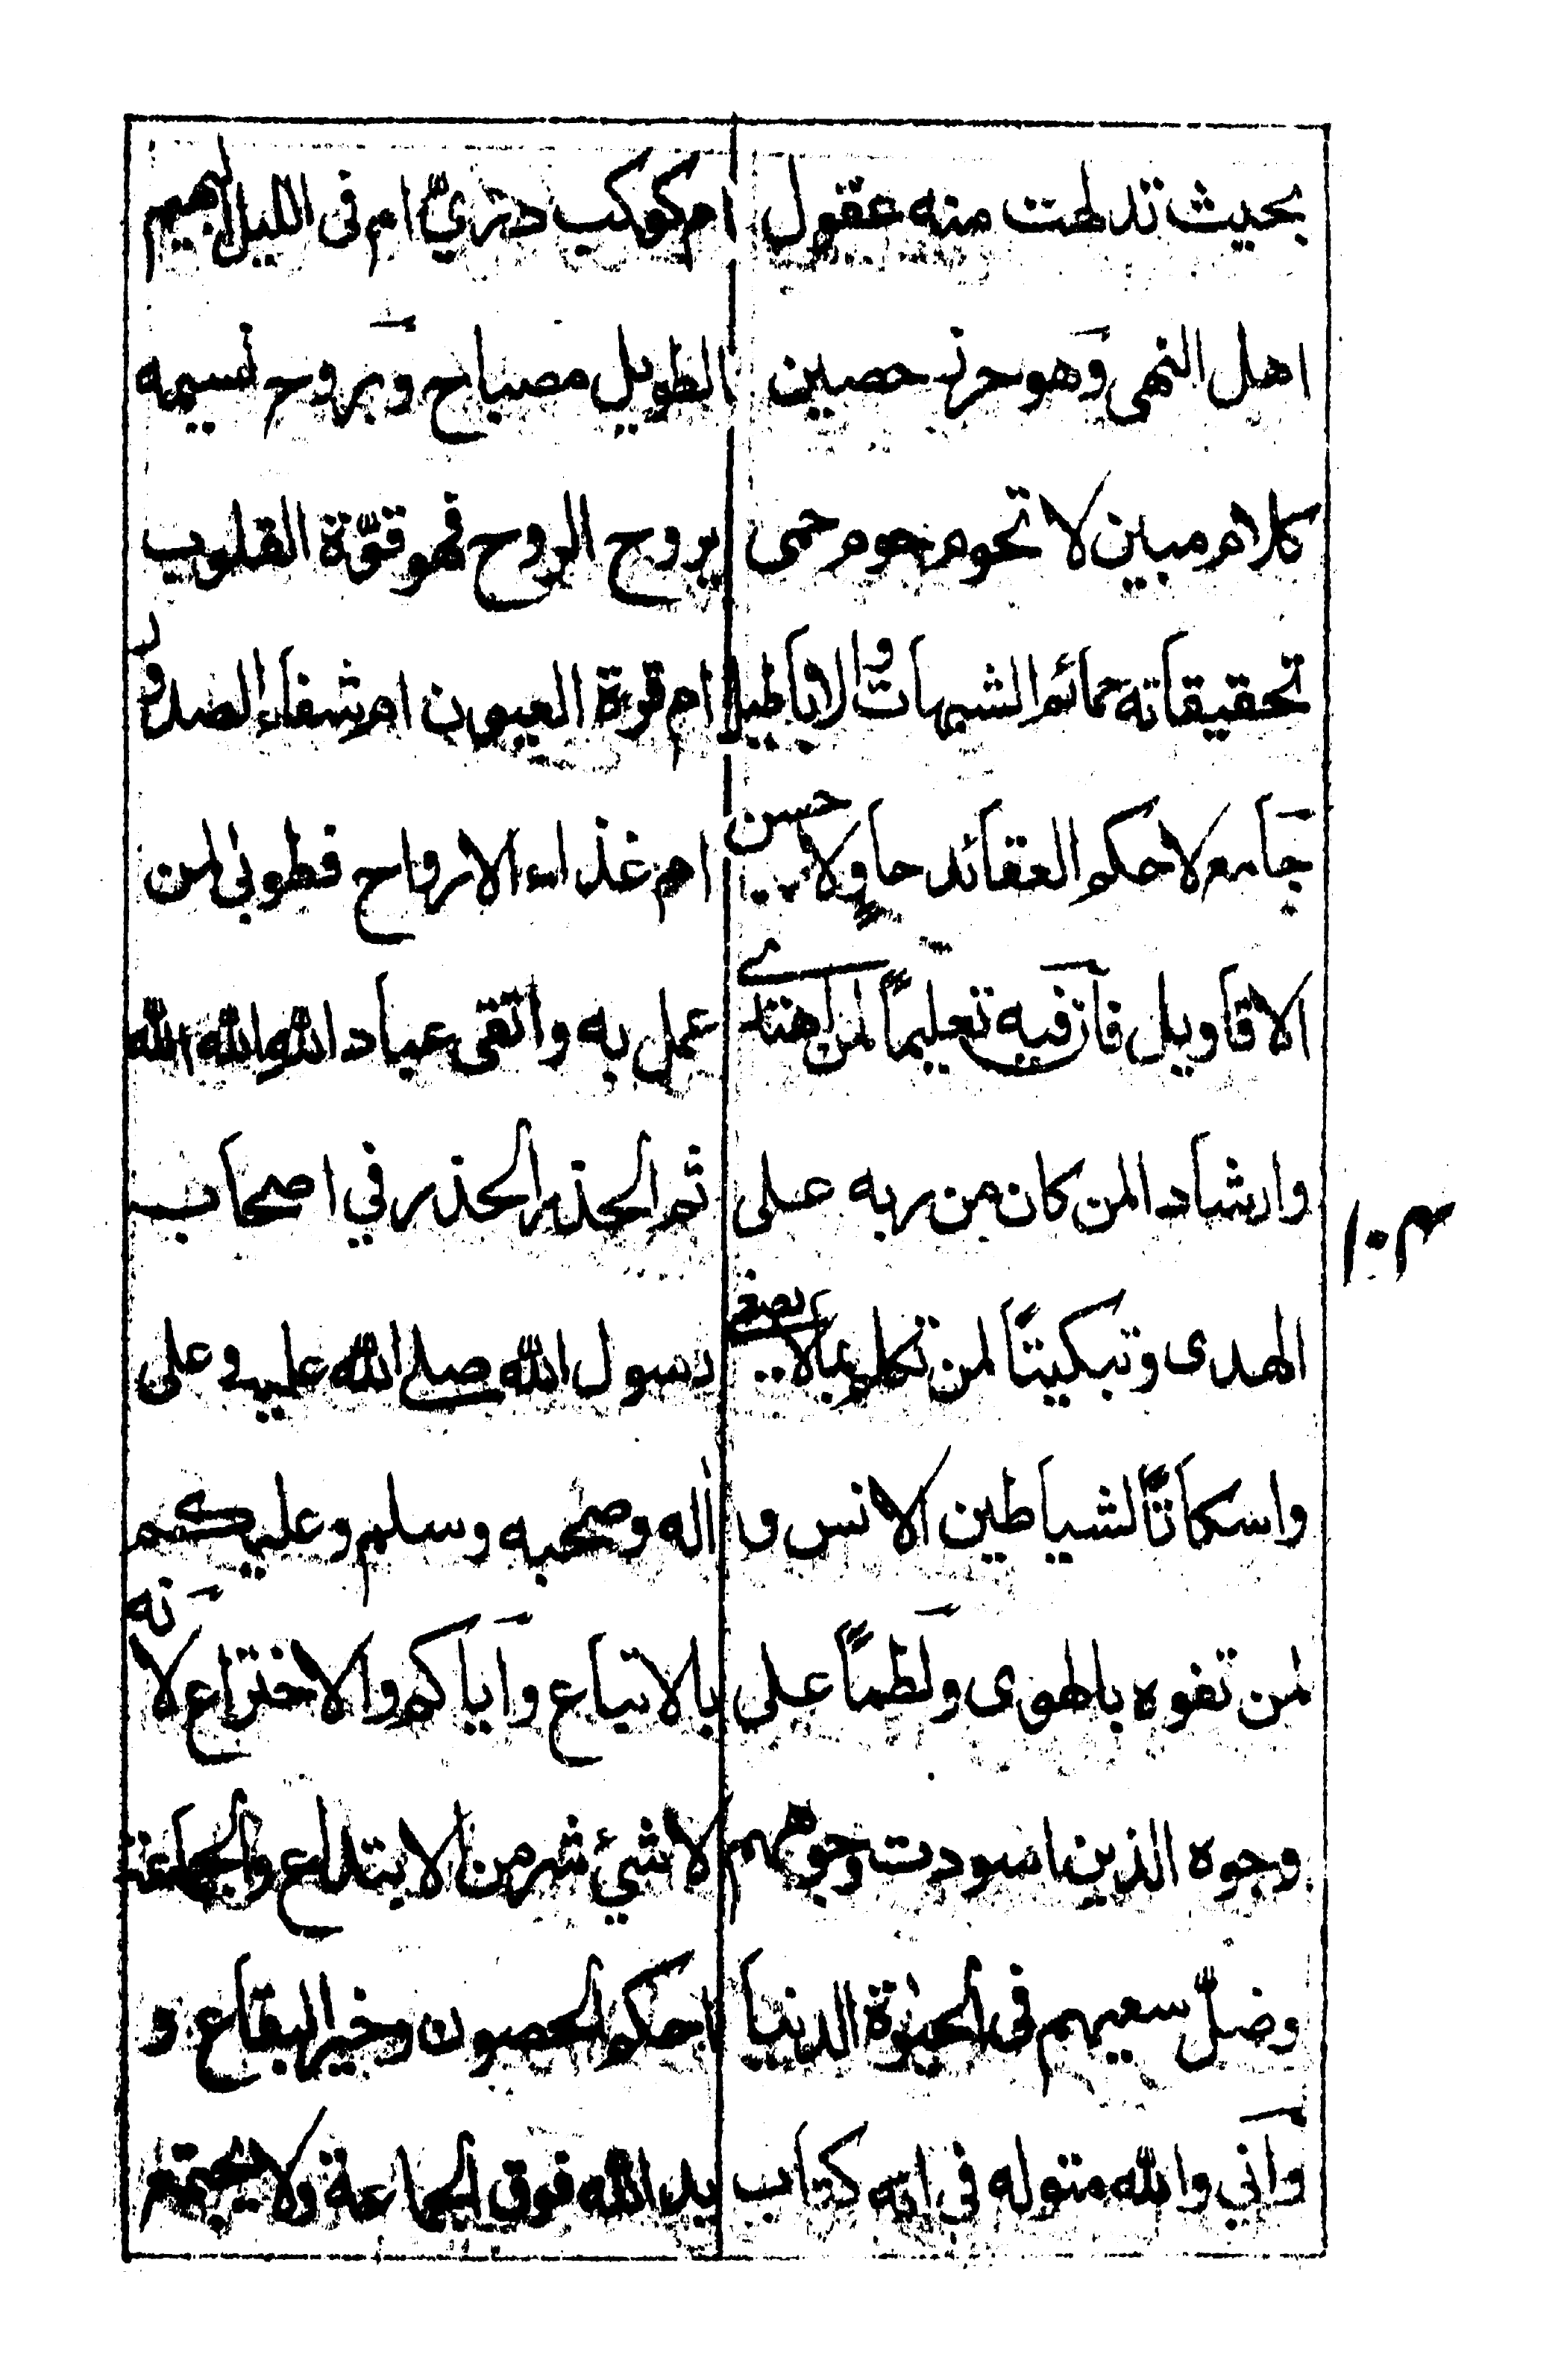 بحيث تدلهت منه عقول
اهل النهى وهو حرز حصين
كلام مبين لا تحوم نحوم حمى
تحقيقاته حمائم الشبهات والاباطيل
جامع لاحكم العقائد حاو لاحسن
الاقاويل فان فيه تعليماً لمن اهتدے
وارشادا لمن كان من ربه على
الهدى وتبكيتاً لمن تكلم بما لا يصغے
واسكاتاً لشياطين الانس و
لمن تفوه بالهوى ولطماً على
وجوه الذين اسودت وجوههم
وضلّ سعيهم فى الحيٰوة الدنيا
وآني والله متوله فى انه كتاب
ام كوكب درّيّ ام فى الليل البهيم
الطويل مصباح وبروح نسيمه
يروح الروح فهو قوّة القلوب
ام قرة العيون ام شفاء الصدور
ام غذاء الارواح فطوبىٰ لمن
عمل به واتقى عباد الله الله الله
ثم الحذر الحذر في اصحاب
رسول الله صلے الله عليه وعلى
اٰله وصحبه وسلم وعليكم
بالاتباع واياكم والاختراع لانه
لا شئ شر من الابتداع والجماعة
احكم الحصون وخير البقاع و
يد الله فوق الجماعة ولا يجتمع
١٠٣